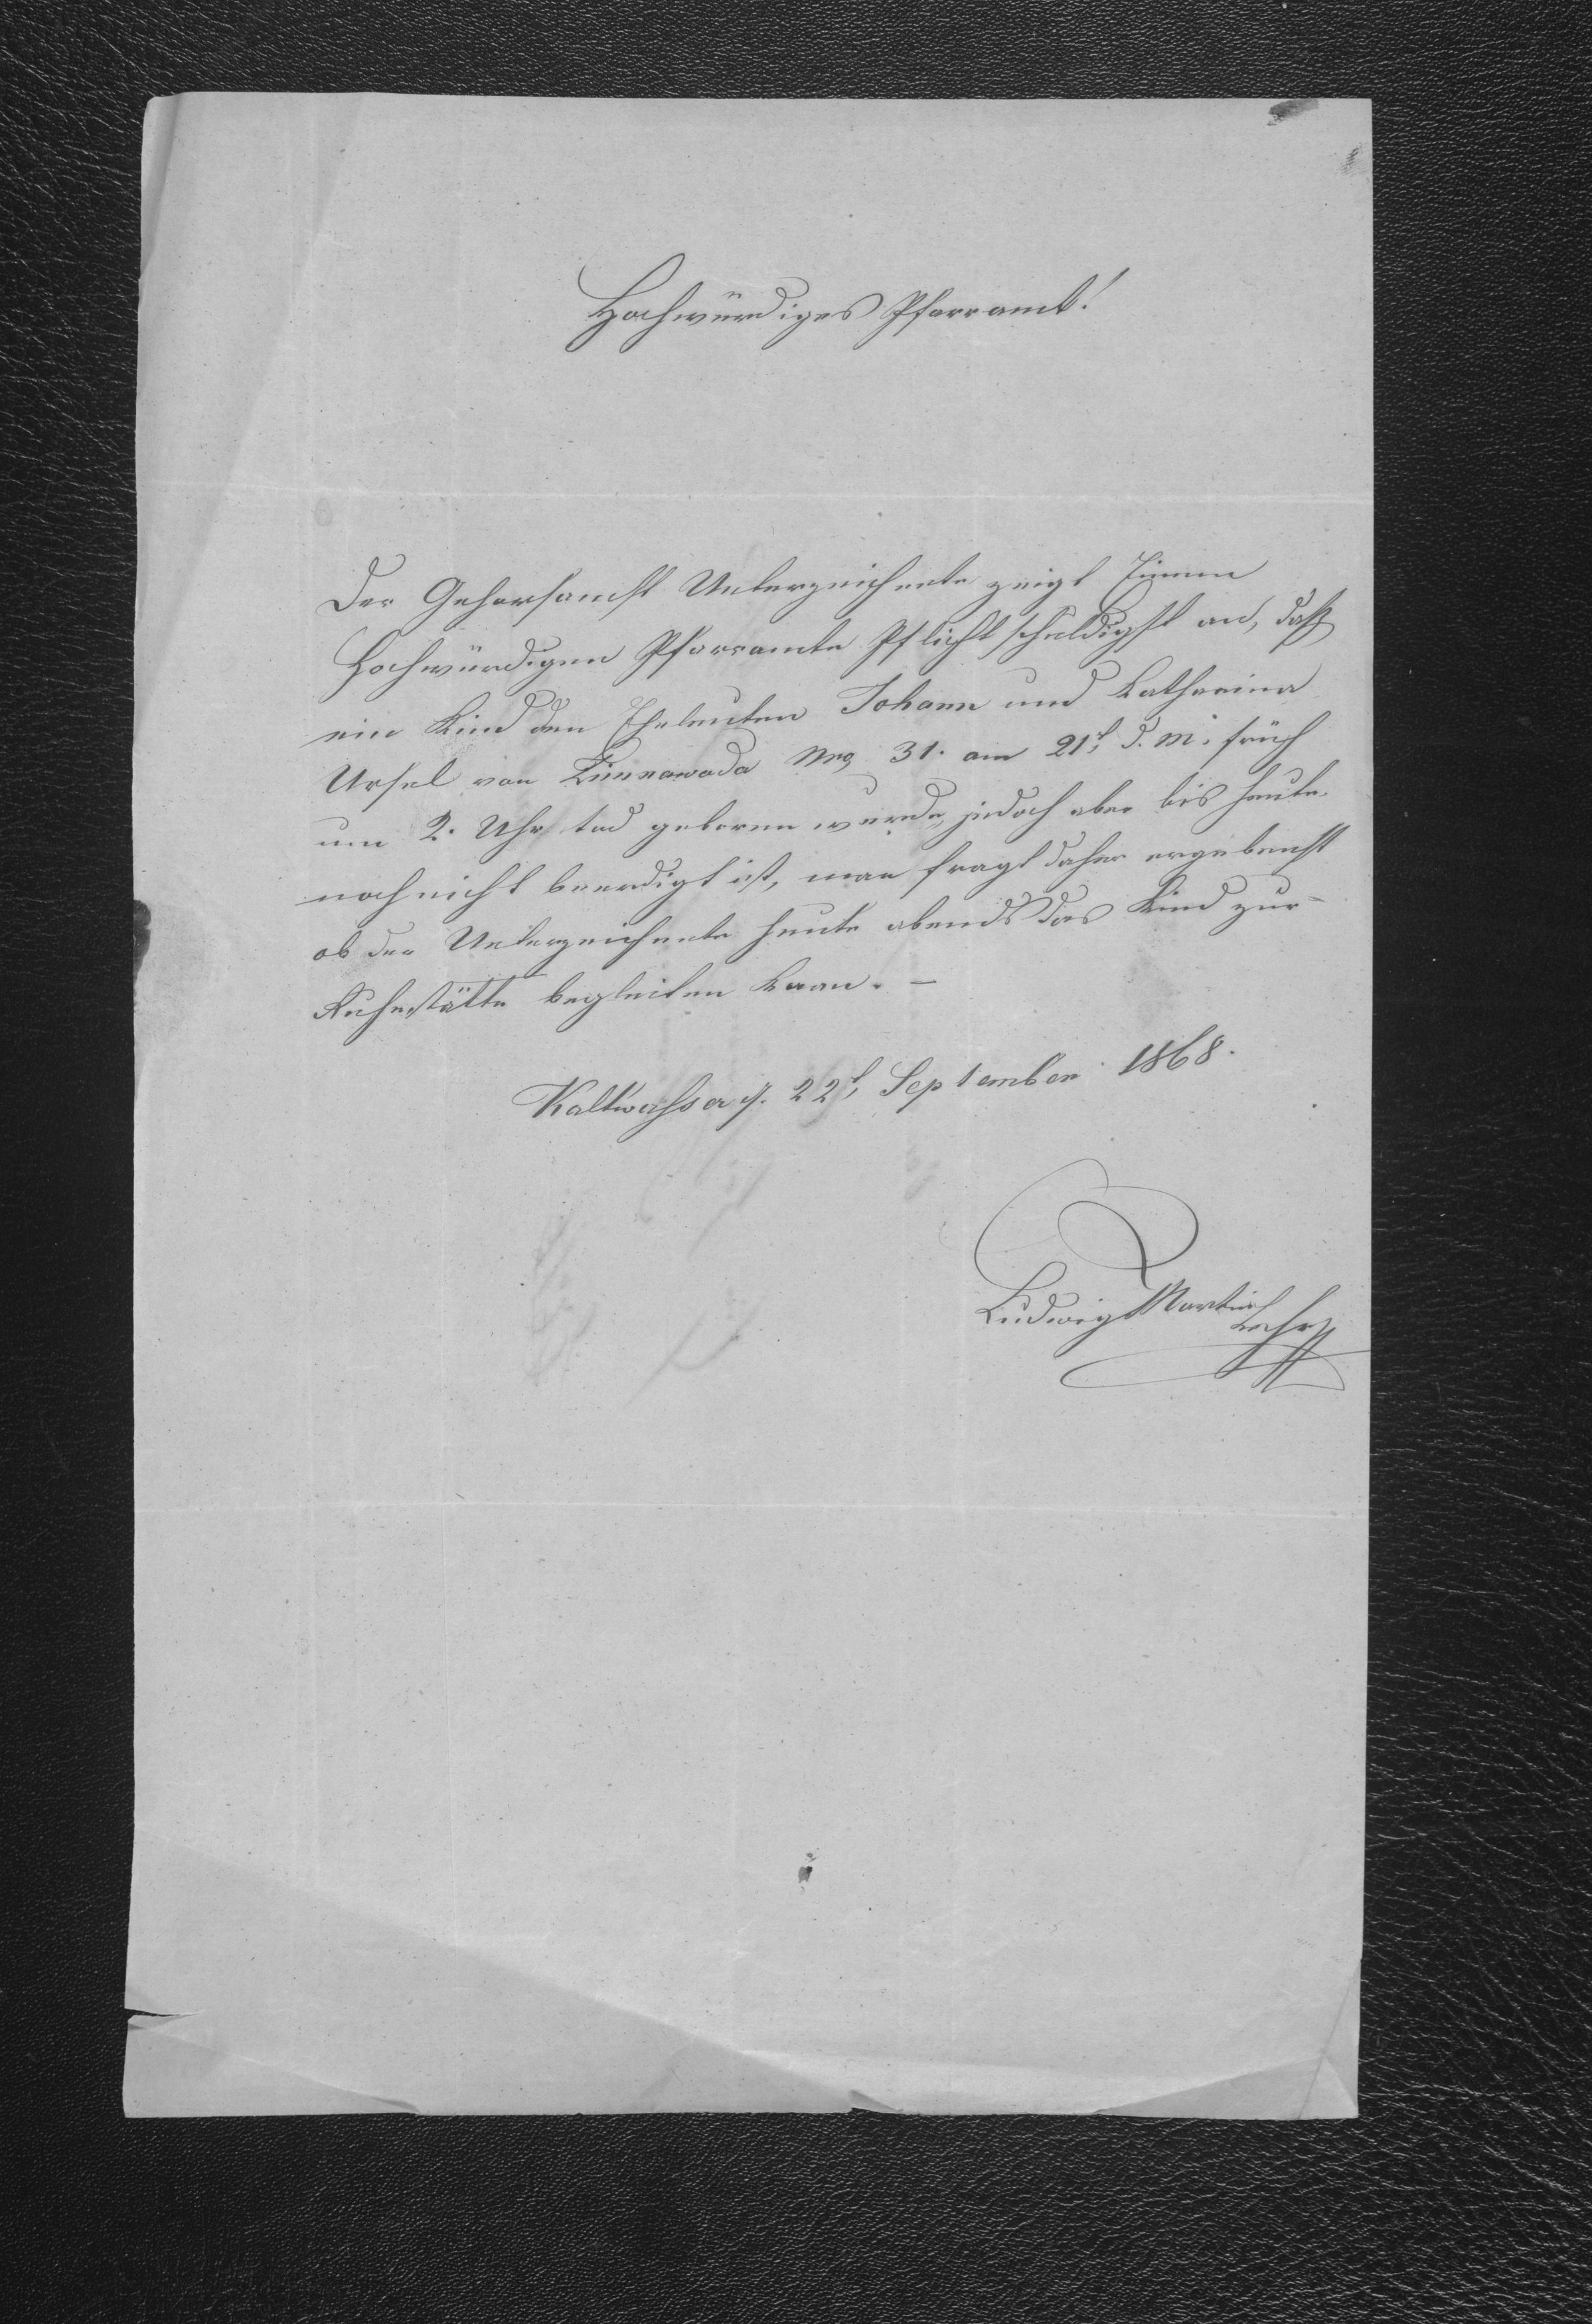 Hochwürdiges Pfarramt!
Der Gehorsamst Unterzeichnete zeigt Einem
Hochwürdigen Pfarramte Pflichtschuldigst an, daß
ein Kind den Eheleuten Johann und Katharina
Ursel von Zinnawoda Nro 31. am 21t, d. M. früh
um 2. Uhr tod geboren wurde, jedoch aber bis heute
noch nicht beerdigt ist, man fragt daher ergebenst
ob der Unterzeichnete heute abends das Kind zur
Ruhestätte begleiten kann. –
Kaltwasser 22t, September 1868.
Ludwig Martin